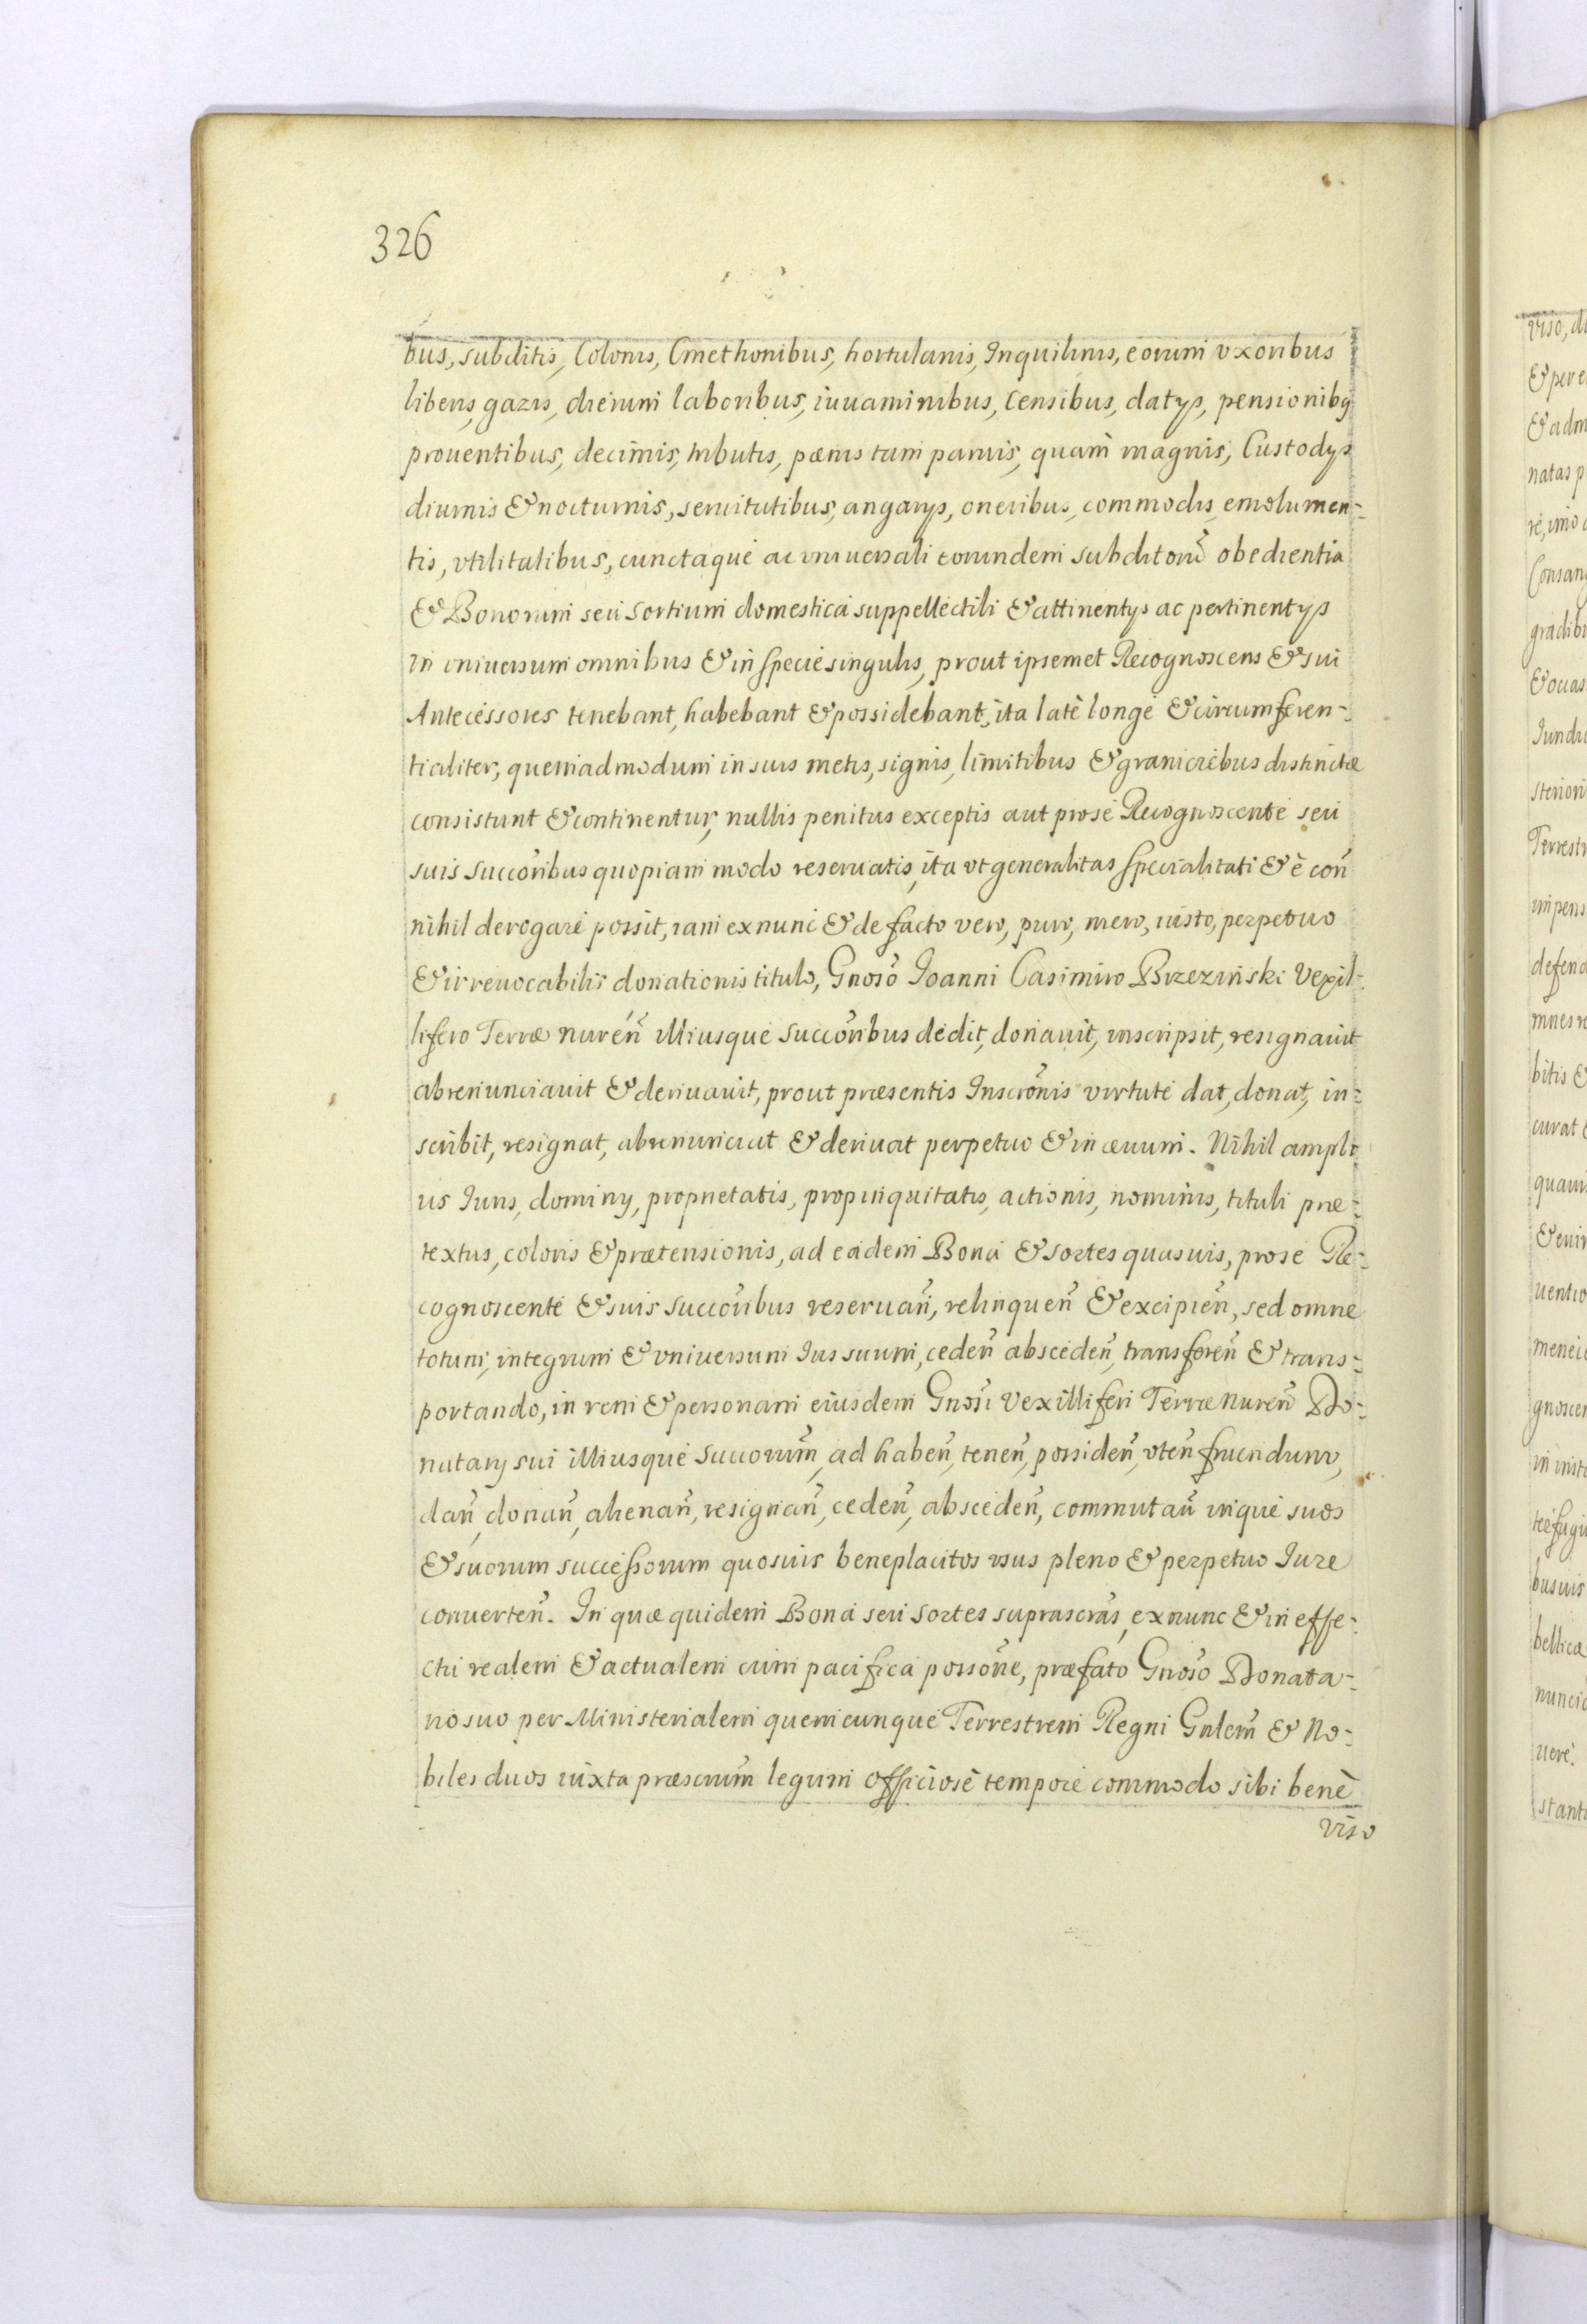 326
bus, subditis, Colonis, Cmethonibus, hortulanis, Inquilinis, eorum vxoribus
liberis, gazis, dierum laboribus, iuuaminibus, Censibus, datys, pensionibq
prouentibus, decimis, tributis, pænis tam paruis, quam magnis, Custodys
diurnis & nocturnis, seruitutibus, angarys, oneribus, commodis, emolumen-
tis, vtilitatibus, cunctaque ac vniuersali eorundem subditorũ obedientia
& Bonorum seu sortium domestica suppellectili & attinentys ac pertinentys
in vniuersum omnibus & in specie singulis, prout ipsemet Recognoscens & sui
Antecessores tenebant, habebant & possidebant, ita latè longè & circumferen-
tialiter, quemadmodum in suis metis, signis, limitibus & graniciebus distinctæ
consistunt & continentur, nullis penitus exceptis aut pro se Recognoscente seu
suis succoribus quopiam modo reseruatis, ita vt generalitas specialitati & è coñ
nihil derogare possit, iam ex nunc & de facto vero, puro, mero, iusto, perpetuo
& irreuocabilis donationis titulo, Gnoso Ioanni Casimiro Brzezinski Vexil-
lifero Terræ nureñ illiusque succoribus dedit, donauit, inscripsit, resignauit
abrenunciauit & deriuauit, prout præsentis Inscronis virtute dat, donat, in-
scribit, resignat, abrenunciat & deriuat perpetuo & in æuum. Nihil ampli-
us Iuris, dominy, proprietatis, propinquitatis, actionis, nominis, tituli præ-
textus, coloris & prætensionis, ad eadem Bona & sortes quasuis, pro se Re-
cognoscente & suis succoribus reseruañ, relinqueñ & excipieñ, sed omne
totum, integrum & vniuersum Ius suum, cedeñ abscedeñ, transfereñ & trans-
portando, in rem & personam eiusdem Gnosi Vexilliferi Terræ nureñ Do-
natary sui illiusque succorum, ad habeñ, teneñ, possideñ, vteñ fruendum,
dañ, donañ, alienañ, resignañ, cedeñ, abscedeñ, commutañ inque suos
& suorum successorum quosuis beneplacitos vsus pleno & perpetuo Iure
conuerteñ. In quæ quidem Bona seu sortes suprascras, ex nunc & in effe-
ctu realem & actualem cum pacifica possone, præfato Gnoso Donata-
rio suo per Ministerialem quemcunque Terrestrem Regni Gnlem & No-
biles duos iuxta præscrum legum officiosè tempore commodo sibi benè
viso